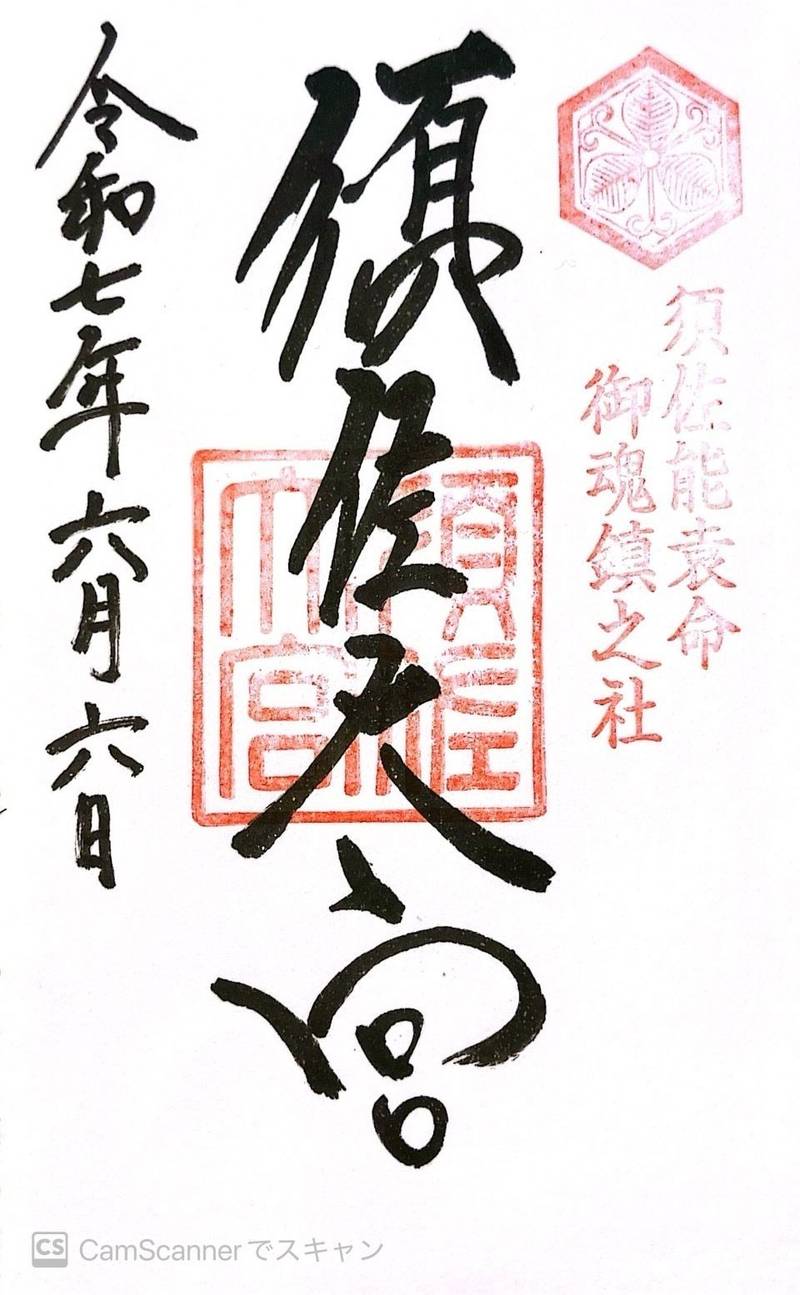 須佐能袁命
御魂鎮之社
須佐大宮
須佐
大宮
令和七年六月六日
CS CamScannerでスキャン